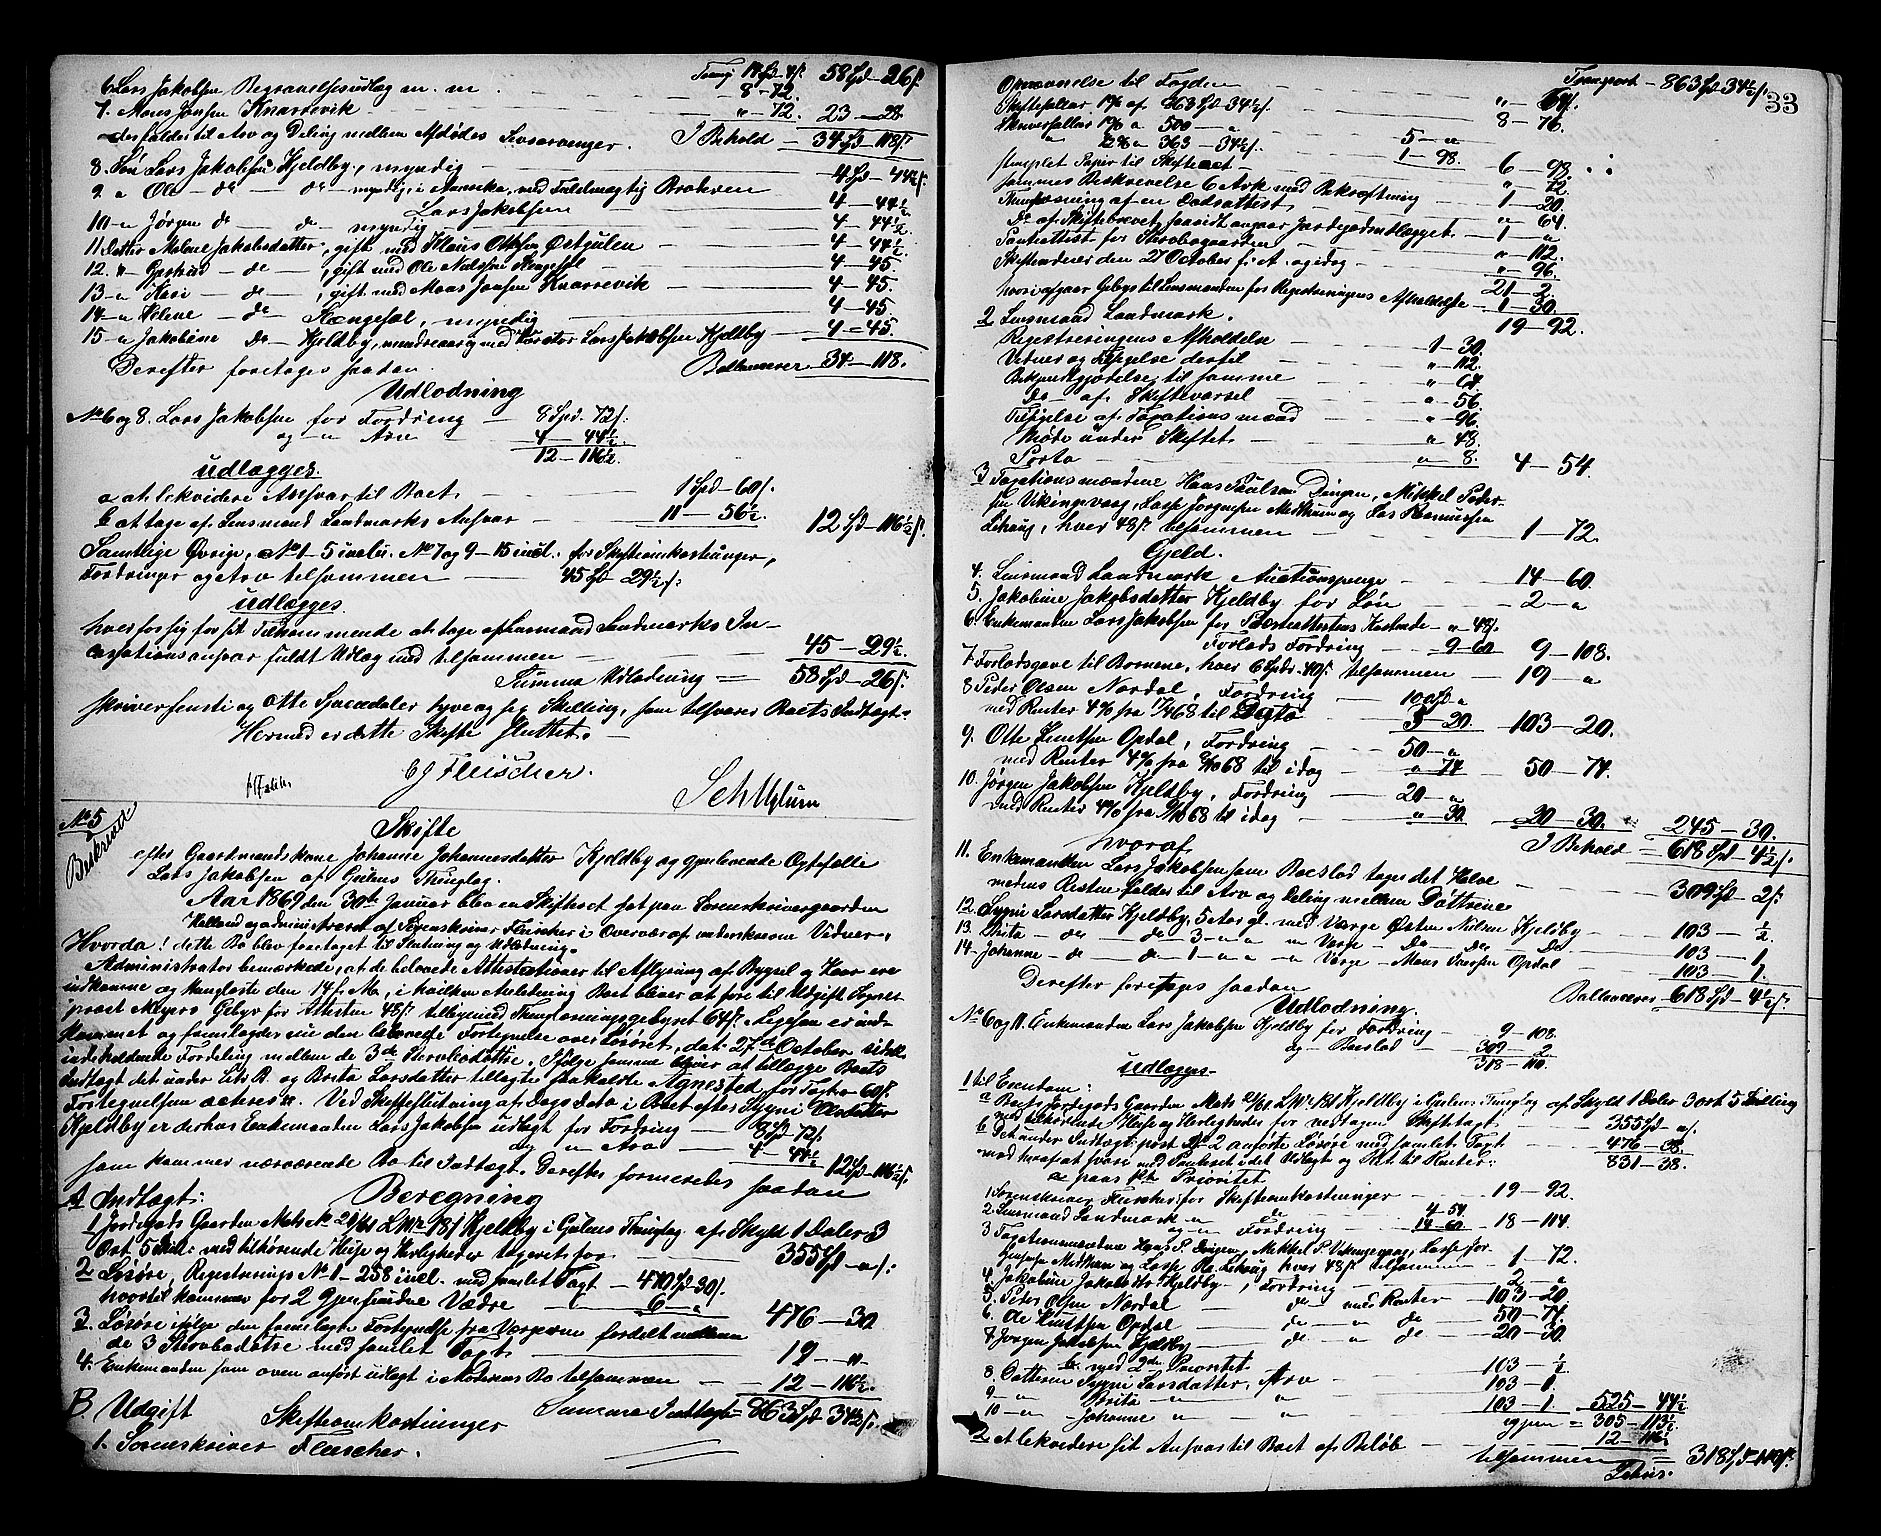 6. Lars Jakobsen Begravelsesudlag m. m. — 8 – 72. 58 Spd – 26 s.
7. Mons Jonsen Knarrevik — " – 72. 23 – 28
der falder til Arv og Deling mellem Afdødes Livsarvinger. I Behold – 34 Spd – 118 s.
8. Søn Lars Jakobsen Kjeldby, myndig — 4 Spd – 44½ s.
9. " Ole – de – de – myndig, i Amerika, ved Fuldmægtig Broderen
Lars Jakobsen — 4 – 44½
10 " Jørgen de de myndig — 4 – 44½
11. Datter Malene Jakobsdatter, gift med Klaus Ottesen Østgulen — 4 – 44½
12. " Gjertrud – de – , gift med Ole Nielsen Hengesøl — 4 – 45.
13 – " Kari – de – , gift med Mons Jonsen Knarrevik — 4 – 45.
14 – " Helene – de – Hengesøl, myndig — 4 – 45
15 – " Jakobine De – Kjeldby, mindreaarig med Curator Lars Jakobsen Kjeldby — 4 – 45.
Derefter foretages saadan Ballancerer 34 – 118.
Udlodning
No 6 og 8. Lars Jakobsen for Fordring — 8 Spd. 72 s.
og – " Arv — 4 – 44½
12 – 116½.
udlægges.
a at lekvidere i Ansvar til Boet — 1 Spd – 60 s.
b at tage af Lensmand Landmarks Ansvar — 11 – 56½. 12 Spd – 116½ s.
Samtlige Øvrige, No 1 – 5 incl. No 7 og 9 – 15 incl. for Skifteomkostninger,
Fordringer og Arv tilsammen — 45 Spd 29½ s.
udlægges.
hver for sig for sit Tilkommende at tage af Lensmand Landmarks In-
cassationsansvar fuldt Udlæg med tilsammen — 45 – 29½.
Summa Udlodning = 58 Spd – 26 s.
skriver femti og Otte Speciedaler tyve og sex Skilling, som tilsvarer Boets Indtægt.
Hermed er dette Skifte sluttet.
CJ Fleischer.
No 5
Beskrevet
Skifte
efter Gaardmandskone Johanne Johannesdatter Kjeldby og gjenlevende Ægtefælle
Lars Jakobsen af Gulens Thinglag.
Aar 1869 den 30te Januar blev en Skifteret sat paa Sorenskrivergaarden
Helland og administreret af Sorenskriver Fleischer i Overvær af underskrevne Vidner.
Hvorda! dette Bo blev foretaget til Slutning og Udlodning.
Administrator bemærkede, at de belovede Attestationer til Aflysning af Bygsel og Kaar ere
indkomne og thinglæste den 14 f. M., i hvilken Anledning Boet bliver at føre til Udgift Sogne-
præst Meyers Gebyr for Attesten 48 s. tilligemed Thinglæsningsgebyret 64 s. Ligesaa er ind-
kommet og fremlægges nu den lovede Fortegnelse over Løsøret, dat. 27de October sidstl.
indeholdende Fordeling mellem de 3de Sterbodøttre. Ifølge samme bliver at tillægge Boets
Indtægt det under Litr. B. og Brita Larsdatter tillagte saakaldte Agnested for Taxt 60 s.
Fortegnelsen acteres. Ved Skifteslutning af Dags Dato i Boet efter Sygni Olsdatter
Kjeldby er der hos Enkemanden Lars Jakobsen udlagt for Fordring — 8 Spd 72 s.
og " Arv — 4 – 44½ 12 Spd – 116½ s.
som kommer nærværende Bo til Indtægt. Derefter formeredes saadan
Beregning
A Indtægt:
1. Jordegods Gaarden Matr. No 21/61 L. No 181 Kjeldby i Gulens Thinglag af Skyld 1 Daler 3
Ort 5 Skill. med tilhørende Huse og Herligheder udgjort for — 355 Spd – " s.
2 Løsøre, Registrerings No 1 – 258 incl. med samlet Taxt – 470 Spd 30 s.
hvortil kommer for 2 gjenfundne Vædre — 6 – " 476 – 30
3. Løsøre ifølge den fremlagte Fortegnelse fra Værgerne fordelt mellem
de 3 Sterbodøtre med samlet Taxt — 19 – "
4. Enkemanden som oven anført udlagt i Moderens Bo tilsammen — 12 – 116½.
B. Udgift Summa Indtægt = 863 Spd 34½ s.
Skifteomkostninger
1. Sorenskriver Fleischer.
33
Transport – 863 Spd 34½ s.
Opnævnelse til Fogden — " – 64.
Skiftesallar 1% af 863 Spd – 34½ s. 8 – 76.
Skriversallar 1% a 500 – " — 5 – "
" ½% a 363 – 34½ s. — 1 – 98. 6 – 98.
stemplet Papir til Skifteact — " – 72.
sammes Beskrivelse 6 Ark med Bekræftning — 1 – 20.
Thinglæsning af en Dødsattest — " – 64.
De af Skiftebrevet forsaavidt angaar Jordegodsudlægget — 1 – "
Pantattest for Sterbogaarden — " – 112.
Skiftenderer den 27 October f. A. og idag — " – 96.
21 – 2.
hvori afgaar Gebyr til Lensmanden for Registreringens Afholdelse — 1 – 30.
2 Lensmand Landmark. 19 – 92.
Registreringens Afholdelse — 1 – 30.
Vidner og Tilsigelse dertil — " – 112.
Bekjendtgjørelse til samme — " – 64.
De – af Skiftevarsel — " – 56.
Tilsigelse af Taxationsmænd — " – 96.
Møde under Skiftet — " – 48.
Porto — " – 8. 4 – 54.
3 Taxationsmændene Hans Paulsen Dingen, Mikkel Peder-
sen Vikingevaag, Lasse Jørgensen Midthun og Lars Rasmussen
Lihaug, hver 48 s. tilsammen — 1 – 72.
Gjeld.
4. Lensmand Landmark, Auctionspenge — 14 – 60.
5. Jakobine Jakobsdatter Kjeldby for Løn — 2 – "
6. Enkemanden Lars Jakobsen for Præsteattestens Kostende – " – 48 s.
Forlods Fordring — 9 – 60 9 – 108.
7 Forlodsgave til Børnene, hver 6 Spdr. 40 s. tilsammen — 19 – "
8 Peder Olsen Nordal, Fordring — 100 Spd "
med Renter 4% fra 11/4 68 til Dato 3 – 20. 103 – 20.
9. Otte Knutsen Opdal, Fordring — 50 – "
med Renter 4% fra 68 til idag — " – 74. 50 – 74.
10. Jørgen Jakobsen Kjeldby, Fordring — 20 – "
med Renter 4% fra 68 til idag — " – 30. 20 – 30. 245 – 30.
hvoraf I Behold = 618 Spd – 4½ s.
11. Enkemanden Lars Jakobsen som Boeslod tager det Halve — 309 Spd – 2 s.
medens Resten falder til Arv og Deling mellem Døttrene
12 Sygni Larsdatter Kjeldby, 5 Aar gl. med Værge Østen Nilsen Kjeldby — 103 – ½.
13. Brita – de – de 3 – " – " " Værge – De – De – De — 103 – 1.
14 – Johanne – de – de – 1 – " – " " Værge – Mons Iversen Opdal — 103 – 1.
Derefter foretages saadan Ballancerer – 618 Spd – 4½ s.
Udlodning.
No 6 og 11. Enkemanden Lars Jakobsen Kjeldby for Fordring — 9 – 108.
og – Boeslod — 309 – 2
318 – 110.
udlægges.
1 til Eiendom:
a Boets Jordegods Gaarden Matr. 21/61. L. No 181 Kjeldby i Gulens Thinglag af Skyld 1 Daler 3 ort 5 Skilling
med tilhørende Huse og Herligheder for vedtagen Skiftetaxt — 355 Spd – " s.
b Det under Indtægt: post No 2 anførte Løsøre med samlet Taxt — 476 – 38.
med hvoraf at svare med Panteret i det Udlagte og 4% til Renter: 831 – 38.
a paa 1ste Prioritet
1. Sorenskriver Fleischer for Skifteomkostninger — 19 – 92.
2 Lensmand Landmark " de — 4 – 54.
og – " Fordring 14 – 60. 18 – 114.
3 Taxationsmændene Hans P. Dingen, Mikkel P. Vikingevaag, Lasse Jør-
gensen Midthun og Lasse Ra. Lihaug hver 48 s. tilsammen — 1 – 72.
4. Jakobine Jakobsdtr. Kjeldby, Fordring — 2 – "
5. Peder Olsen Nordal — de med Renter — 103 – 20.
6. Otte Knutsen Opdal — de – " de — 50 – 74.
7. Jørgen Jakobsen Kjeldby — de – " de — 20 – 30
b. med 2den Prioritet
8. Datteren Sygni Larsdatter, Arv — 103 – ½.
9 – " Brita " " — 103 – 1.
10 – " Johanne " " — 103 – 1 525 – 44½
igjen = 305 – 113½
2 At lekvidere sit Ansvar til Boet af Beløb — 12 – 116½
tilsammen — 318 Spd – 110 s.